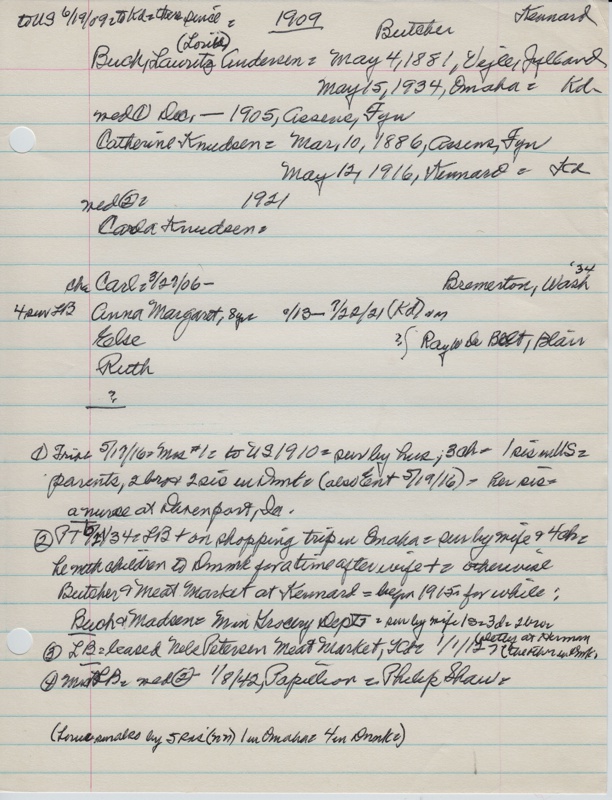 to US 6/19/09 = to Kd = there since = 1909 Butcher Kennard
(Louis)
Buck, Lauritz Andersen = May 4, 1881, Vejle, Jylland
May 15, 1934, Omaha = Kd-
med ① Dec, — 1905, Assens, Fyn
Catherine Knudsen = Mar, 10, 1886, Assens, Fyn
May 12, 1916, Kennard = Kd
med ② = 1921
Carla Knudsen =
ch = Carl = 3/27/06 - Bremerton, Wash '34
4 surv LB Anna Margaret, 8yr = 9/13 - 7/22/21 (Kd)
Else ?{ Ray W De Bolt, Blair
Ruth
?
① Trib = 5/17/16 = Mrs #1 = to US 1910 = sur by hus, 3 ch = 1 sis in US =
parents, 2 bro & 2 sis in Dmk = (also Ent 5/19/16) = her sis =
a nurse at Davenport, Ia.
② PT /34 = LB + on shopping trip in Omaha = sur by wife & 4 ch =
he with children to Dnmk for a time after wife + = otherwise
Butcher & Meat Market at Kennard = began 1915 for while;
Buck & Madsen = Grocery Dept = sur by wife 1s = 3d = 2 bro
③ LB = leased Nels Petersen Meat Market, Kd = 1/1/12 = ? (letter at Herman in Dmk.
④ Mrs LB = med ② 1/8/42, Papillion = Philip Shaw =
(Louis by 5 sis (nn) 1 in Omaha = 4 in Dmk =)